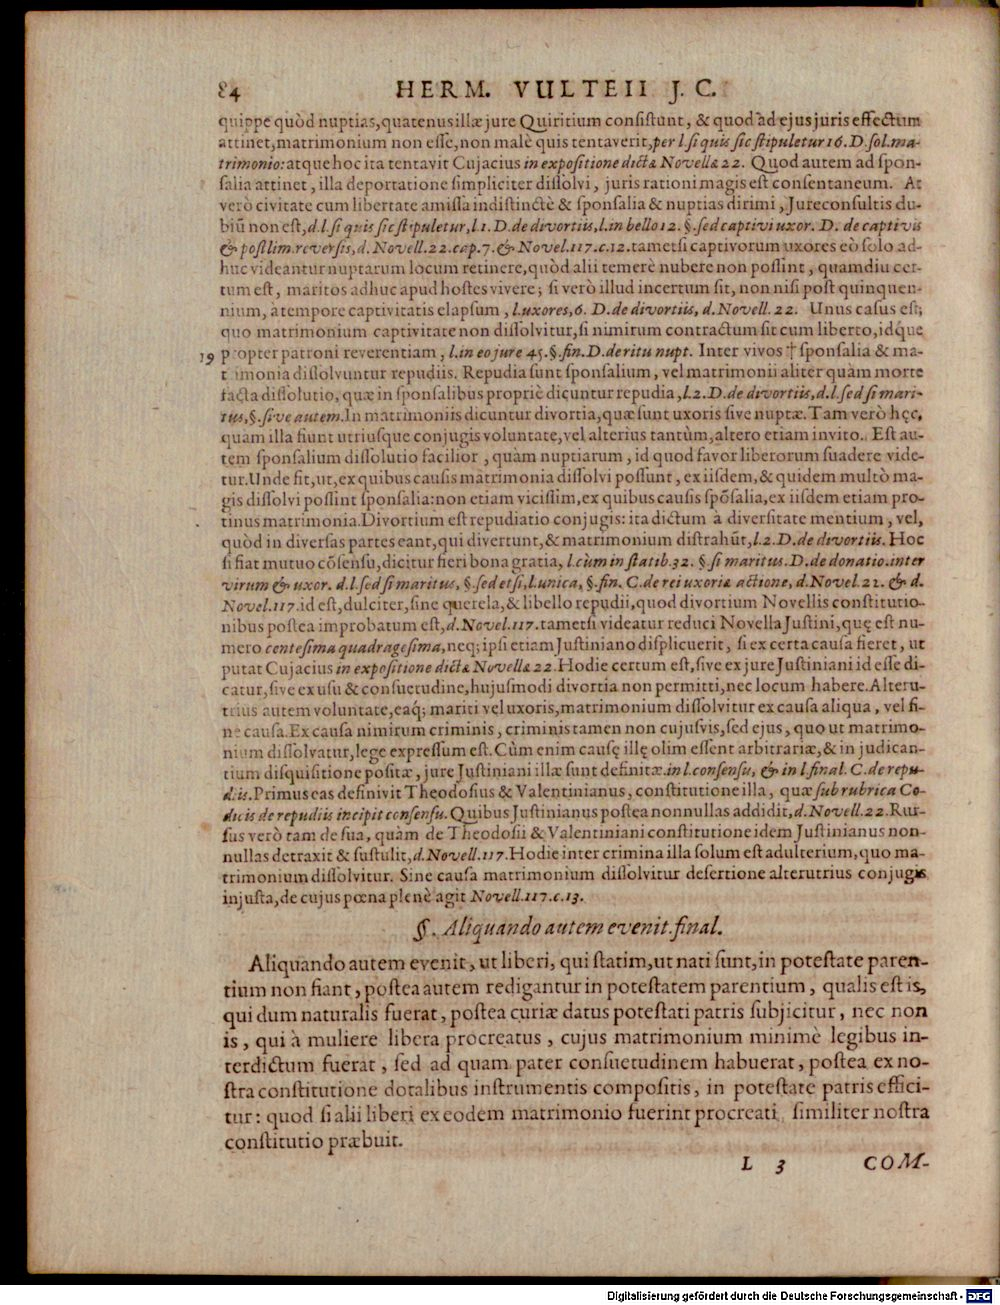 84 HERM. VULTEII J. C.
quippe quòd nuptias, quatenus illæ jure Quiritium consistunt, & quod ad ejus juris effectum
attinet, matrimonium non esse, non malè quis tentaverit, per l. si quis sic stipuletur 16. D. sol. ma-
trimonio: atque hoc ita tentavit Cujacius in expositione dictæ Novellæ 22. Quod autem ad spon-
salia attinet, illa deportatione simpliciter dissolvi, juris rationi magis est consentaneum. At
verò civitate cum libertate amissa indistinctè & sponsalia & nuptias dirimi, Jureconsultis du-
biũ non est, d. l. si quis sic stipuletur, l. 1. D. de divortiis, l. in bello 12. §. sed captivi uxor. D. de captivis
& postlim. reversis, d. Novell. 22. cap. 7. & Novel. 117. c. 12. tametsi captivorum uxores eò solo ad-
huc videantur nuptarum locum retinere, quòd alii temerè nubere non possint, quamdiu cer-
tum est, maritos adhuc apud hostes vivere; si verò illud incertum sit, non nisi post quinquen-
nium, à tempore captivitatis elapsum, l. uxores, 6. D. de divortiis, d. Novell. 22. Unus casus est;
quo matrimonium captivitate non dissolvitur, si nimirum contractum sit cum liberto, idque
19 propter patroni reverentiam, l. in eo jure 45. §. fin. D. de ritu nupt. Inter vivos † sponsalia & ma-
trimonia dissolvuntur repudiis. Repudia sunt sponsalium, vel matrimonii aliter quàm morte
facta dissolutio, quæ in sponsalibus propriè dicuntur repudia, l. 2. D. de divortiis, d. l. sed si mari-
tus, §. sive autem. In matrimoniis dicuntur divortia, quæ sunt uxoris sive nuptæ. Tam verò hęc,
quam illa fiunt utriusque conjugis voluntate, vel alterius tantùm, altero etiam invito. Est au-
tem sponsalium dissolutio facilior, quàm nuptiarum, id quod favor liberorum suadere vide-
tur. Unde fit, ut, ex quibus causis matrimonia dissolvi possunt, ex iisdem, & quidem multò ma-
gis dissolvi possint sponsalia: non etiam vicissim, ex quibus causis spõsalia, ex iisdem etiam pro-
tinus matrimonia. Divortium est repudiatio conjugis: ita dictum à diversitate mentium, vel,
quòd in diversas partes eant, qui divertunt, & matrimonium distrahũt, l. 2. D. de divortiis. Hoc
si fiat mutuo cõsensu, dicitur fieri bona gratia, l. cùm in statib. 32. §. si maritus. D. de donatio. inter
virum & uxor. d. l. sed si maritus, §. sed etsi, l. unica, §. fin. C. de rei uxoriæ actione, d. Novel. 22. & d.
Novel. 117. id est, dulciter, sine querela, & libello repudii, quod divortium Novellis constitutio-
nibus postea improbatum est, d. Novel. 117. tametsi videatur reduci Novella Justini, quę est nu-
mero centesima quadragesima, neq; ipsi etiam Justiniano displicuerit, si ex certa causa fieret, ut
putat Cujacius in expositione dictæ Novellæ 22. Hodie certum est, sive ex jure Justiniani id esse di-
catur, sive ex usu & consuetudine, hujusmodi divortia non permitti, nec locum habere. Alteru-
trius autem voluntate, eaq; mariti vel uxoris, matrimonium dissolvitur ex causa aliqua, vel si-
ne causa. Ex causa nimirum criminis, criminis tamen non cujusvis, sed ejus, quo ut matrimo-
nium dissolvatur, lege expressum est. Cùm enim causę illę olim essent arbitrariæ, & in judican-
tium disquisitione positæ, jure Justiniani illæ sunt definitæ. in l. consensu, & in l. final. C. de repu-
diis. Primus eas definivit Theodosius & Valentinianus, constitutione illa, quæ sub rubrica Co-
dicis de repudiis incipit consensu. Quibus Justinianus postea nonnullas addidit, d. Novell. 22. Rur-
sus verò tam de sua, quàm de Theodosii & Valentiniani constitutione idem Justinianus non-
nullas detraxit & sustulit, d. Novell. 117. Hodie inter crimina illa solum est adulterium, quo ma-
trimonium dissolvitur. Sine causa matrimonium dissolvitur desertione alterutrius conjugis
injusta, de cujus pœna plenè agit Novell. 117. c. 13.
§. Aliquando autem evenit. final.
Aliquando autem evenit, ut liberi, qui statim, ut nati sunt, in potestate paren-
tium non fiant, postea autem redigantur in potestatem parentium, qualis est is,
qui dum naturalis fuerat, postea curiæ datus potestati patris subjicitur, nec non
is, qui à muliere libera procreatus, cujus matrimonium minimè legibus in-
terdictum fuerat, sed ad quam pater consuetudinem habuerat, postea ex no-
stra constitutione dotalibus instrumentis compositis, in potestate patris effici-
tur: quod si alii liberi ex eodem matrimonio fuerint procreati, similiter nostra
constitutio præbuit.
L 3 COM-
Digitalisierung gefördert durch die Deutsche Forschungsgemeinschaft - DFG